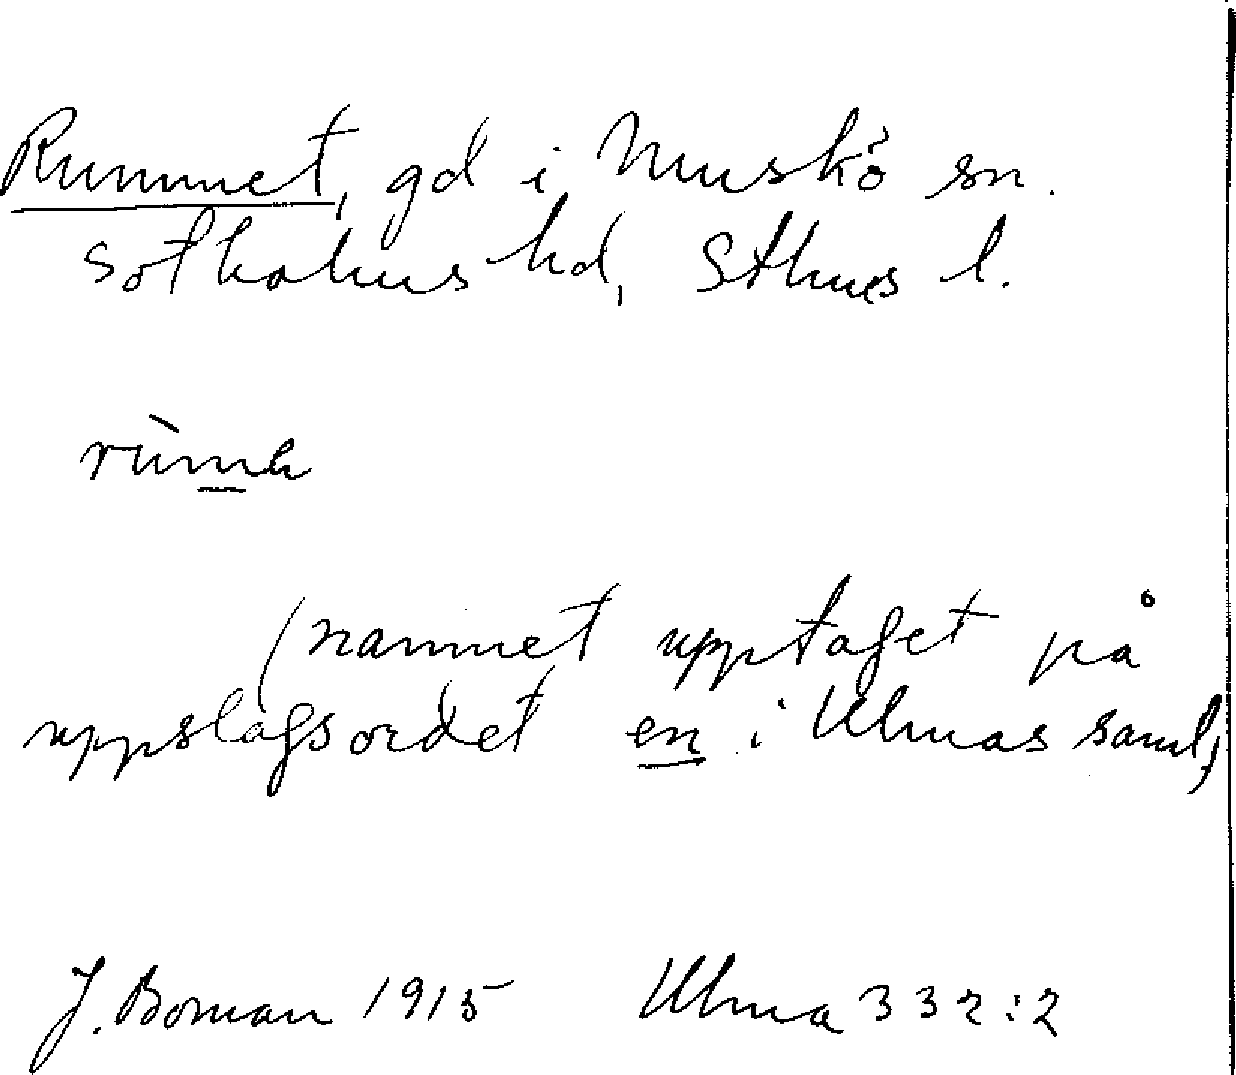 Rummet, gd i Muskö sn.
Sotholms hd, Sthms l.
(namnet upptaget på
uppslagsordet en i Ulmas saml,
J. Boman 1915 Ulma 332:2